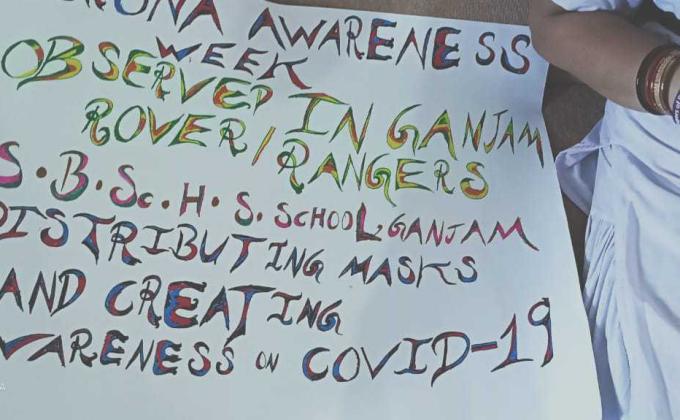 RONA AWARENESS
WEEK
OBSERVED IN GANJAM
ROVER/RANGERS
S.B.Sc.H.S. SCHOOL GANJAM
DISTRIBUTING MASKS
AND CREATING
WARENESS ON COVID-19